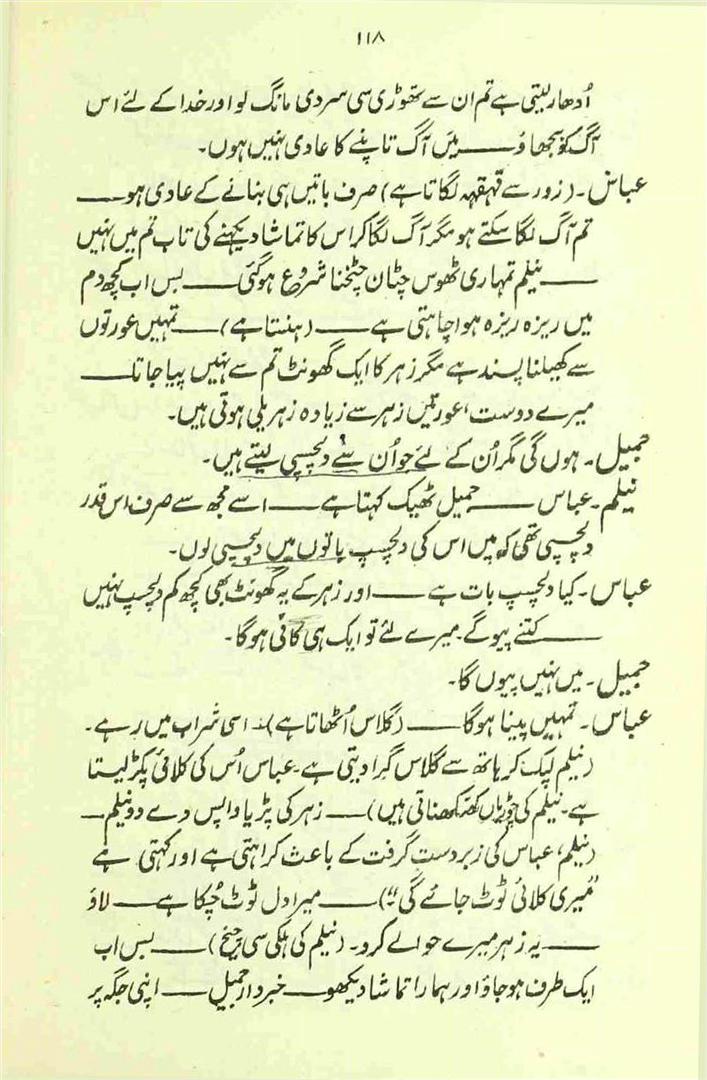 ۱۱۸
اُدھار لیتی ہے تم ان سے تھوڑی سی سردی مانگ لو اور خدا کے لئے اس
آگ کو بجھاؤ ——— میں آگ تاپنے کا عادی نہیں ہوں۔
عباس۔ (زور سے قہقہہ لگاتا ہے) صرف باتیں ہی بنانے کے عادی ہو ——
تم آگ لگا سکتے ہو مگر آگ لگا کر اس کا تماشا دیکھنے کی تاب تم میں نہیں
——— نیلم تمہاری ٹھوس چٹان چٹخنا شروع ہو گئی ——— بس اب کچھ دم
میں ریزہ ریزہ ہوا چاہتی ہے ——— (ہنستا ہے) —— تمہیں عورتوں
سے کھیلنا پسند ہے مگر زہر کا ایک گھونٹ تم سے نہیں پیا جاتا ——
میرے دوست، عورتیں زہر سے زیادہ زہریلی ہوتی ہیں۔
جمیل۔ ہوں گی مگر اُن کے لئے جو اُن سے دلچسپی لیتے ہیں۔
نیلم۔ عباس ——— جمیل ٹھیک کہتا ہے ——— اسے مجھ سے صرف اس قدر
دلچسپی تھی کہ میں اس کی دلچسپ باتوں میں دلچسپی لوں۔
عباس۔ کیا دلچسپ بات ہے ——— اور زہر کے یہ گھونٹ بھی کچھ کم دلچسپ نہیں
——— کتنے پیو گے۔ میرے لئے تو ایک ہی کافی ہوگا۔
جمیل۔ میں نہیں پیوں گا۔
عباس۔ تمہیں پینا ہوگا ——— (گلاس اُٹھاتا ہے)۔ اسی شراب میں رہے۔
(نیلم لپک کر ہاتھ سے گلاس گرا دیتی ہے۔ عباس اُس کی کلائی پکڑ لیتا
ہے۔ نیلم کی چوڑیاں کھنکھناتی ہیں) —— زہر کی پڑیا واپس دے دو نیلم —
(نیلم، عباس کی زبردست گرفت کے باعث کراہتی ہے اور کہتی ہے
”میری کلائی ٹوٹ جائے گی“) —— میرا دل ٹوٹ چکا ہے —— لاؤ
——— یہ زہر میرے حوالے کرو۔ (نیلم کی ہلکی سی چیخ) ——— بس اب
ایک طرف ہو جاؤ اور ہمارا تماشا دیکھو —— خبردار جمیل —— اپنی جگہ پر